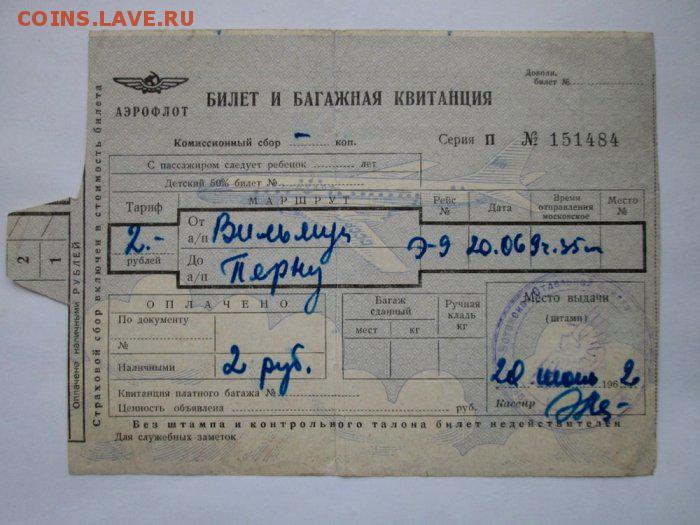 COINS.LAVE.RU
АЭРОФЛОТ
БИЛЕТ И БАГАЖНАЯ КВИТАНЦИЯ
Доволн.
билет №
Комиссионный сбор – коп.
Серия П № 151484
С пассажиром следует ребенок лет
Детский 50% билет №
Тариф
МАРШРУТ
Рейс №
Дата
Время отправления московское
Место №
2.-
рублей
От а/п Вильмуи
До а/п Перну
Э-9 20.06 9ч.35м
ОПЛАЧЕНО
По документу
№
Наличными 2 руб.
Багаж сданный
мест кг
Ручная кладь кг
Место выдачи
(штамп)
20 июнь 1962
Кассир
Квитанция платного багажа №
Ценность объявлена руб.
Без штампа и контрольного талона билет недействителен
Для служебных заметок
Страховой сбор включен в стоимость билета
Оплачено наличными РУБЛЕЙ
2
1
СССР